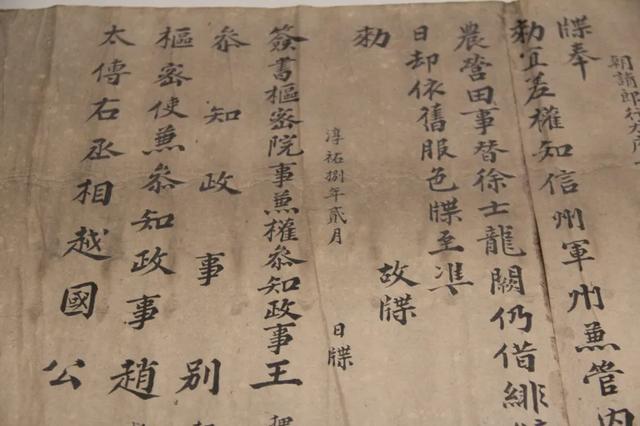 朝請郎行太府
牒奉
勑宜差權知信州軍州兼管内
農營田事替徐士龍闕仍借緋
日却依舊服色牒至準
勑
故牒
淳祐捌年貳月
日牒
簽書樞密院事兼權參知政事王
參知政事別
樞密使兼參知政事趙
太傅右丞相越國公